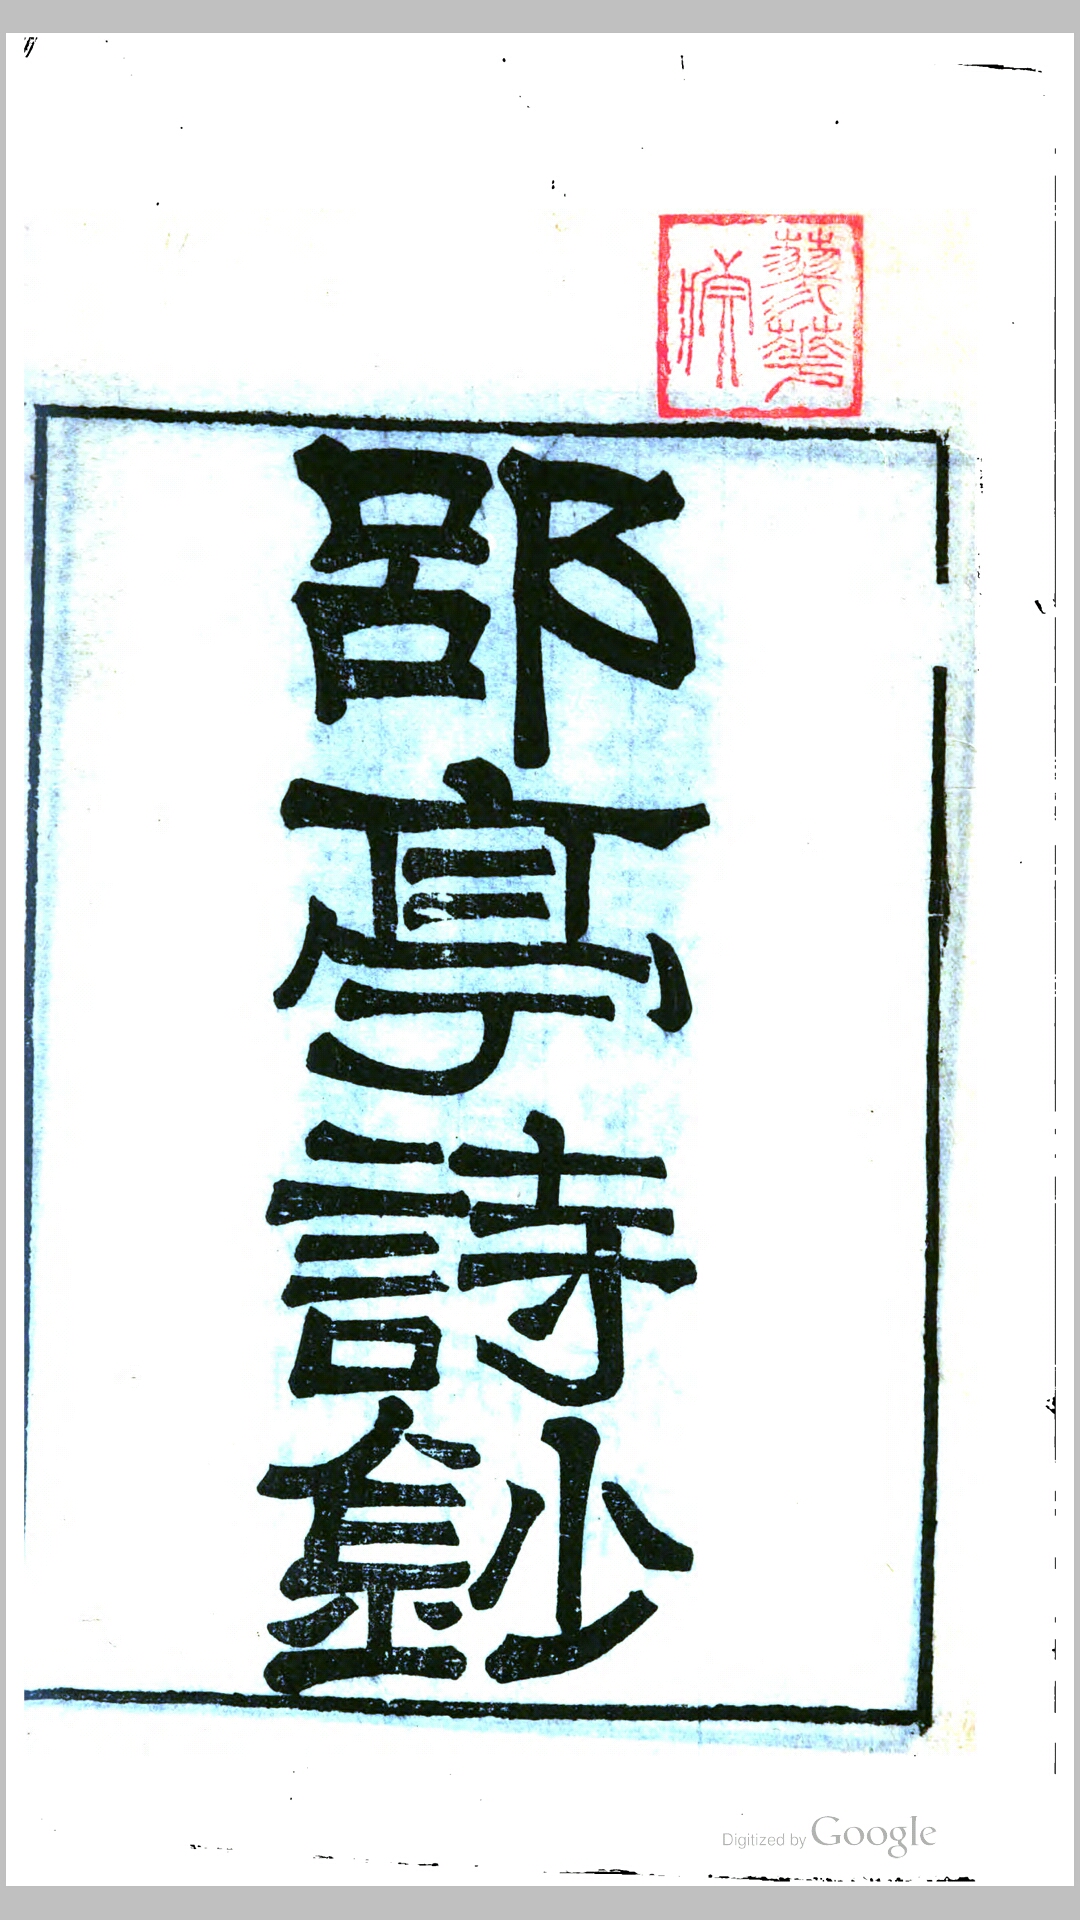 郘亭詩鈔
Digitized by Google